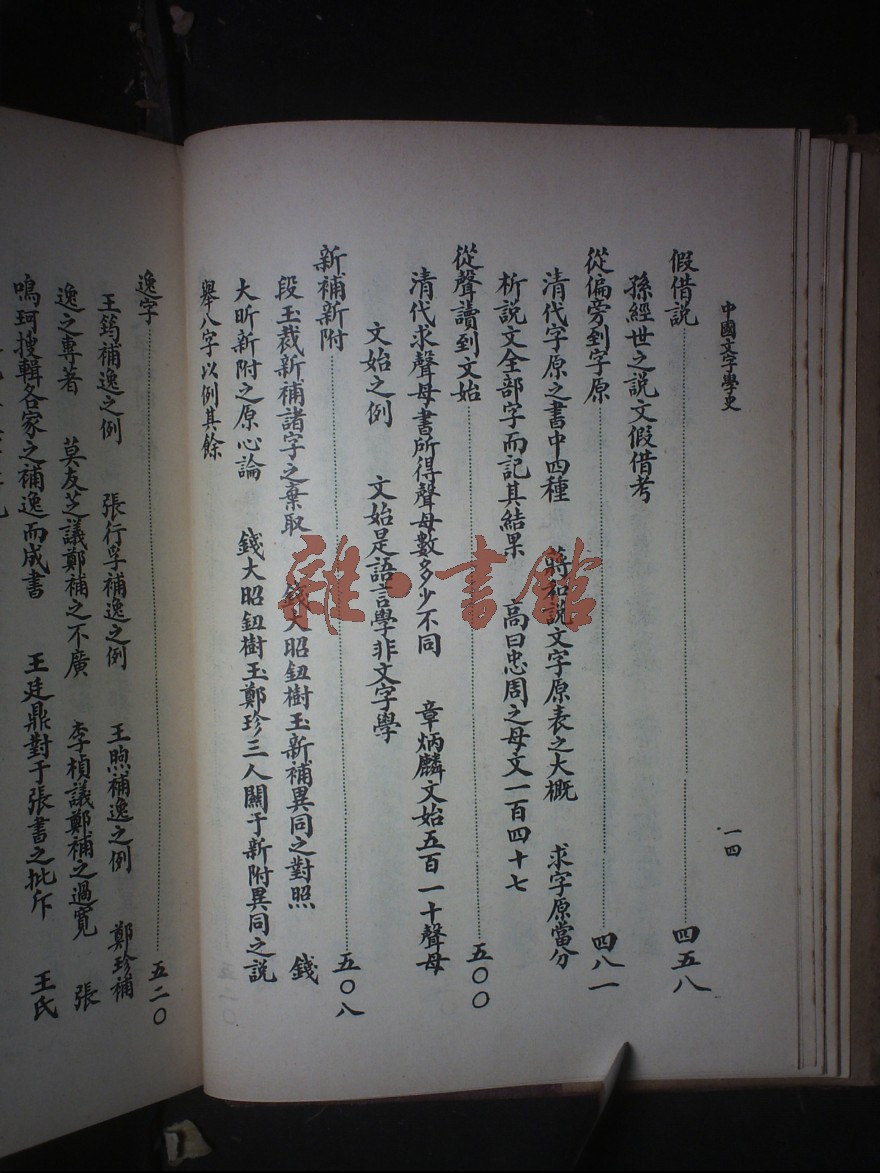 中國文字學史
一四
假借説……四五八
孫經世之説文假借考
從偏旁到字原……四八一
清代字原之書中四種　蔣和説文字原表之大概　求字原當分
析説文全部字而記其結果　高曰忠周之母文一百四十七
從聲讀到文始……五〇〇
清代求聲母書所得聲母數多少不同　章炳麟文始五百一十聲母
文始之例　文始是語言學非文字學
新補新附……五〇八
段玉裁新補諸字之棄取　錢大昭鈕樹玉新補異同之對照　錢
大昕新附之原心論　錢大昭鈕樹玉鄭珍三人關于新附異同之説
舉八字以例其餘
逸字……五二〇
王筠補逸之例　張行孚補逸之例　王煦補逸之例　鄭珍補
逸之專著　莫友芝議鄭補之不廣　李楨議鄭補之過寬　張
鳴珂搜輯各家之補逸而成書　王廷鼎對于張書之批斥　王氏
雜·書館